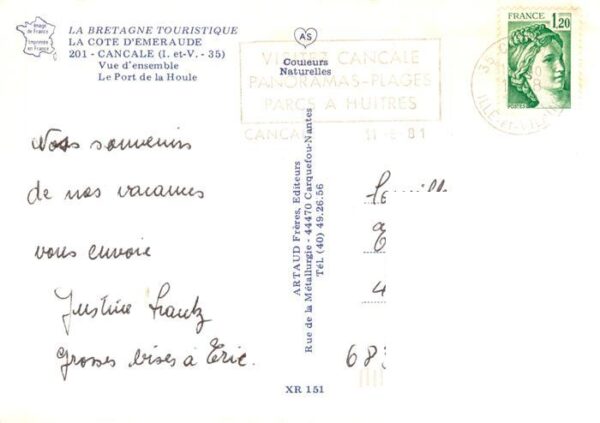 Image de France
Imprimée en France
LA BRETAGNE TOURISTIQUE
LA COTE D'EMERAUDE
201 - CANCALE (I. et-V. - 35)
Vue d'ensemble
Le Port de la Houle
AS
Couleurs
Naturelles
VISITEZ CANCALE
PANORAMAS-PLAGES
PARCS A HUITRES
CANCA
81
FRANCE
1,20
35
ILLE-ET-VILAINE
Nos souvenirs
de nos vacances
vous envoie
Justine
Grosses bises à Eric.
ARTAUD Frères, Editeurs
Rue de la Métallurgie - 44470 Carquefou-Nantes
Tél. (40) 49.26.56
68
XR 151